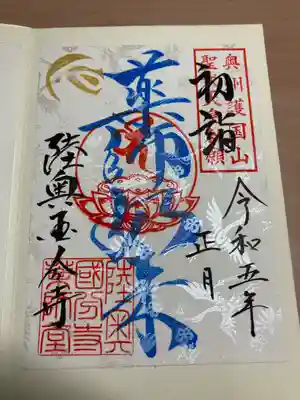 奥州護国山
初詣
令和五年
正月
薬師如来
陸奥国分寺
陸奥
國分寺
薬師堂